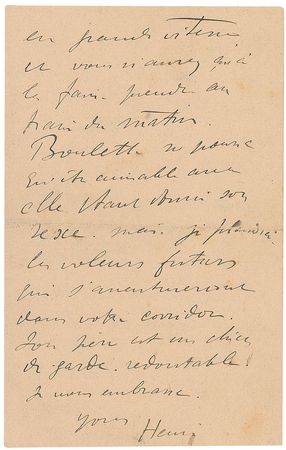 en grande vitesse
et vous n'aurez qu'à
la faire prendre au
train du matin.
Boulette ne pourra
en être aimable avec
elle étant donné son
sexe. mais je plaindrai
les voleurs futurs
qui s'aventureront
dans votre corridor.
Son père est un chien
de garde. redoutable.
Je vous embrasse.
yours
Henri